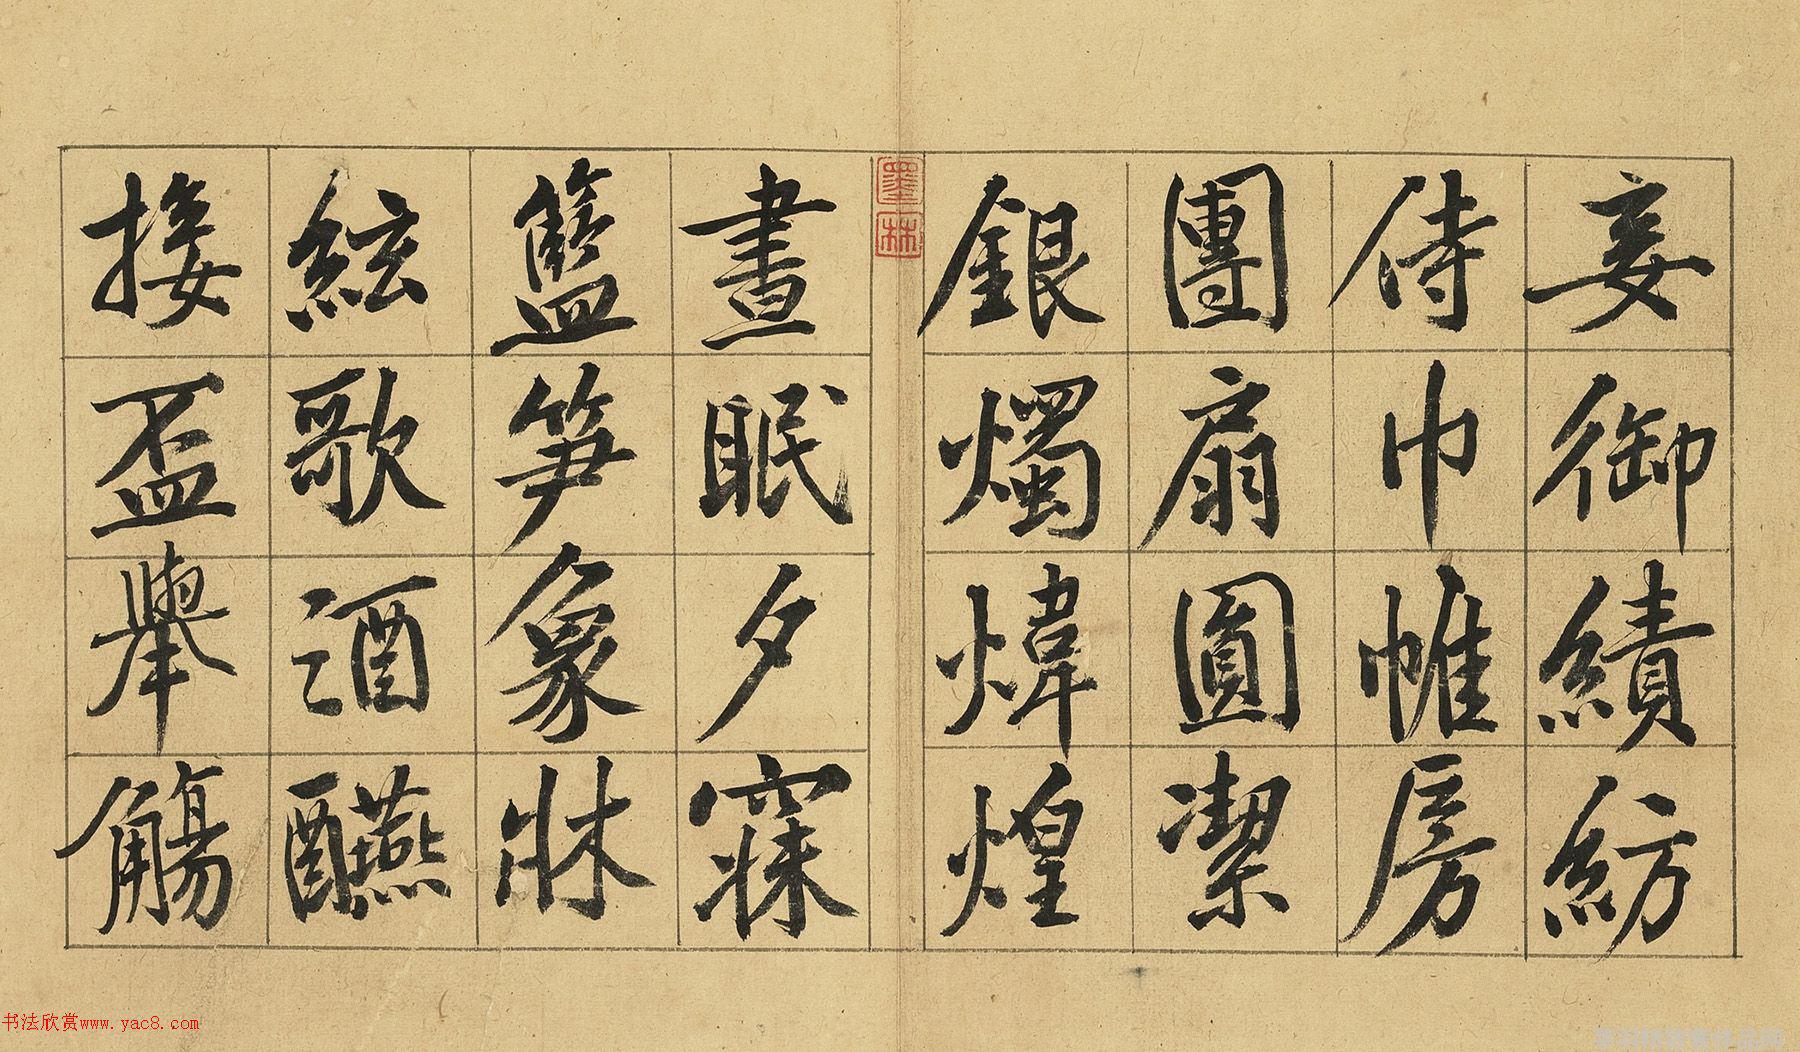 妾御績紡
侍巾帷房
團扇圓潔
銀燭煒煌
晝眠夕寐
籃笋象牀
絃歌酒醼
接盃舉觴
墨林
书法欣赏www.yac8.com